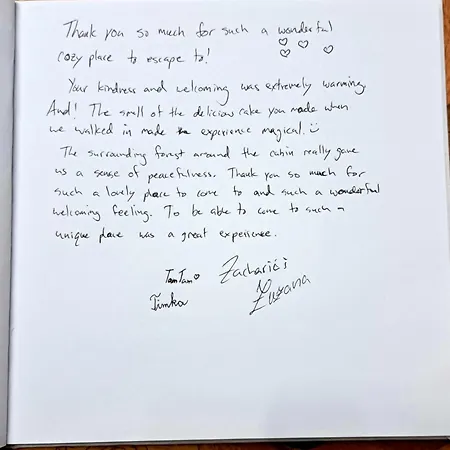 Thank you so much for such a wonderful
cozy place to escape to! ♡ ♡ ♡ ♡
Your kindness and welcoming was extremely warming.
And! The smell of the delicious cake you made when
we walked in made the experience magical. :)
The surrounding forest around the cabin really gave
us a sense of peacefulness. Thank you so much for
such a lovely place to come to and such a wonderful
welcoming feeling. To be able to come to such a
unique place was a great experience.
TamTam♡ Zachariáš
Timka Zuzana